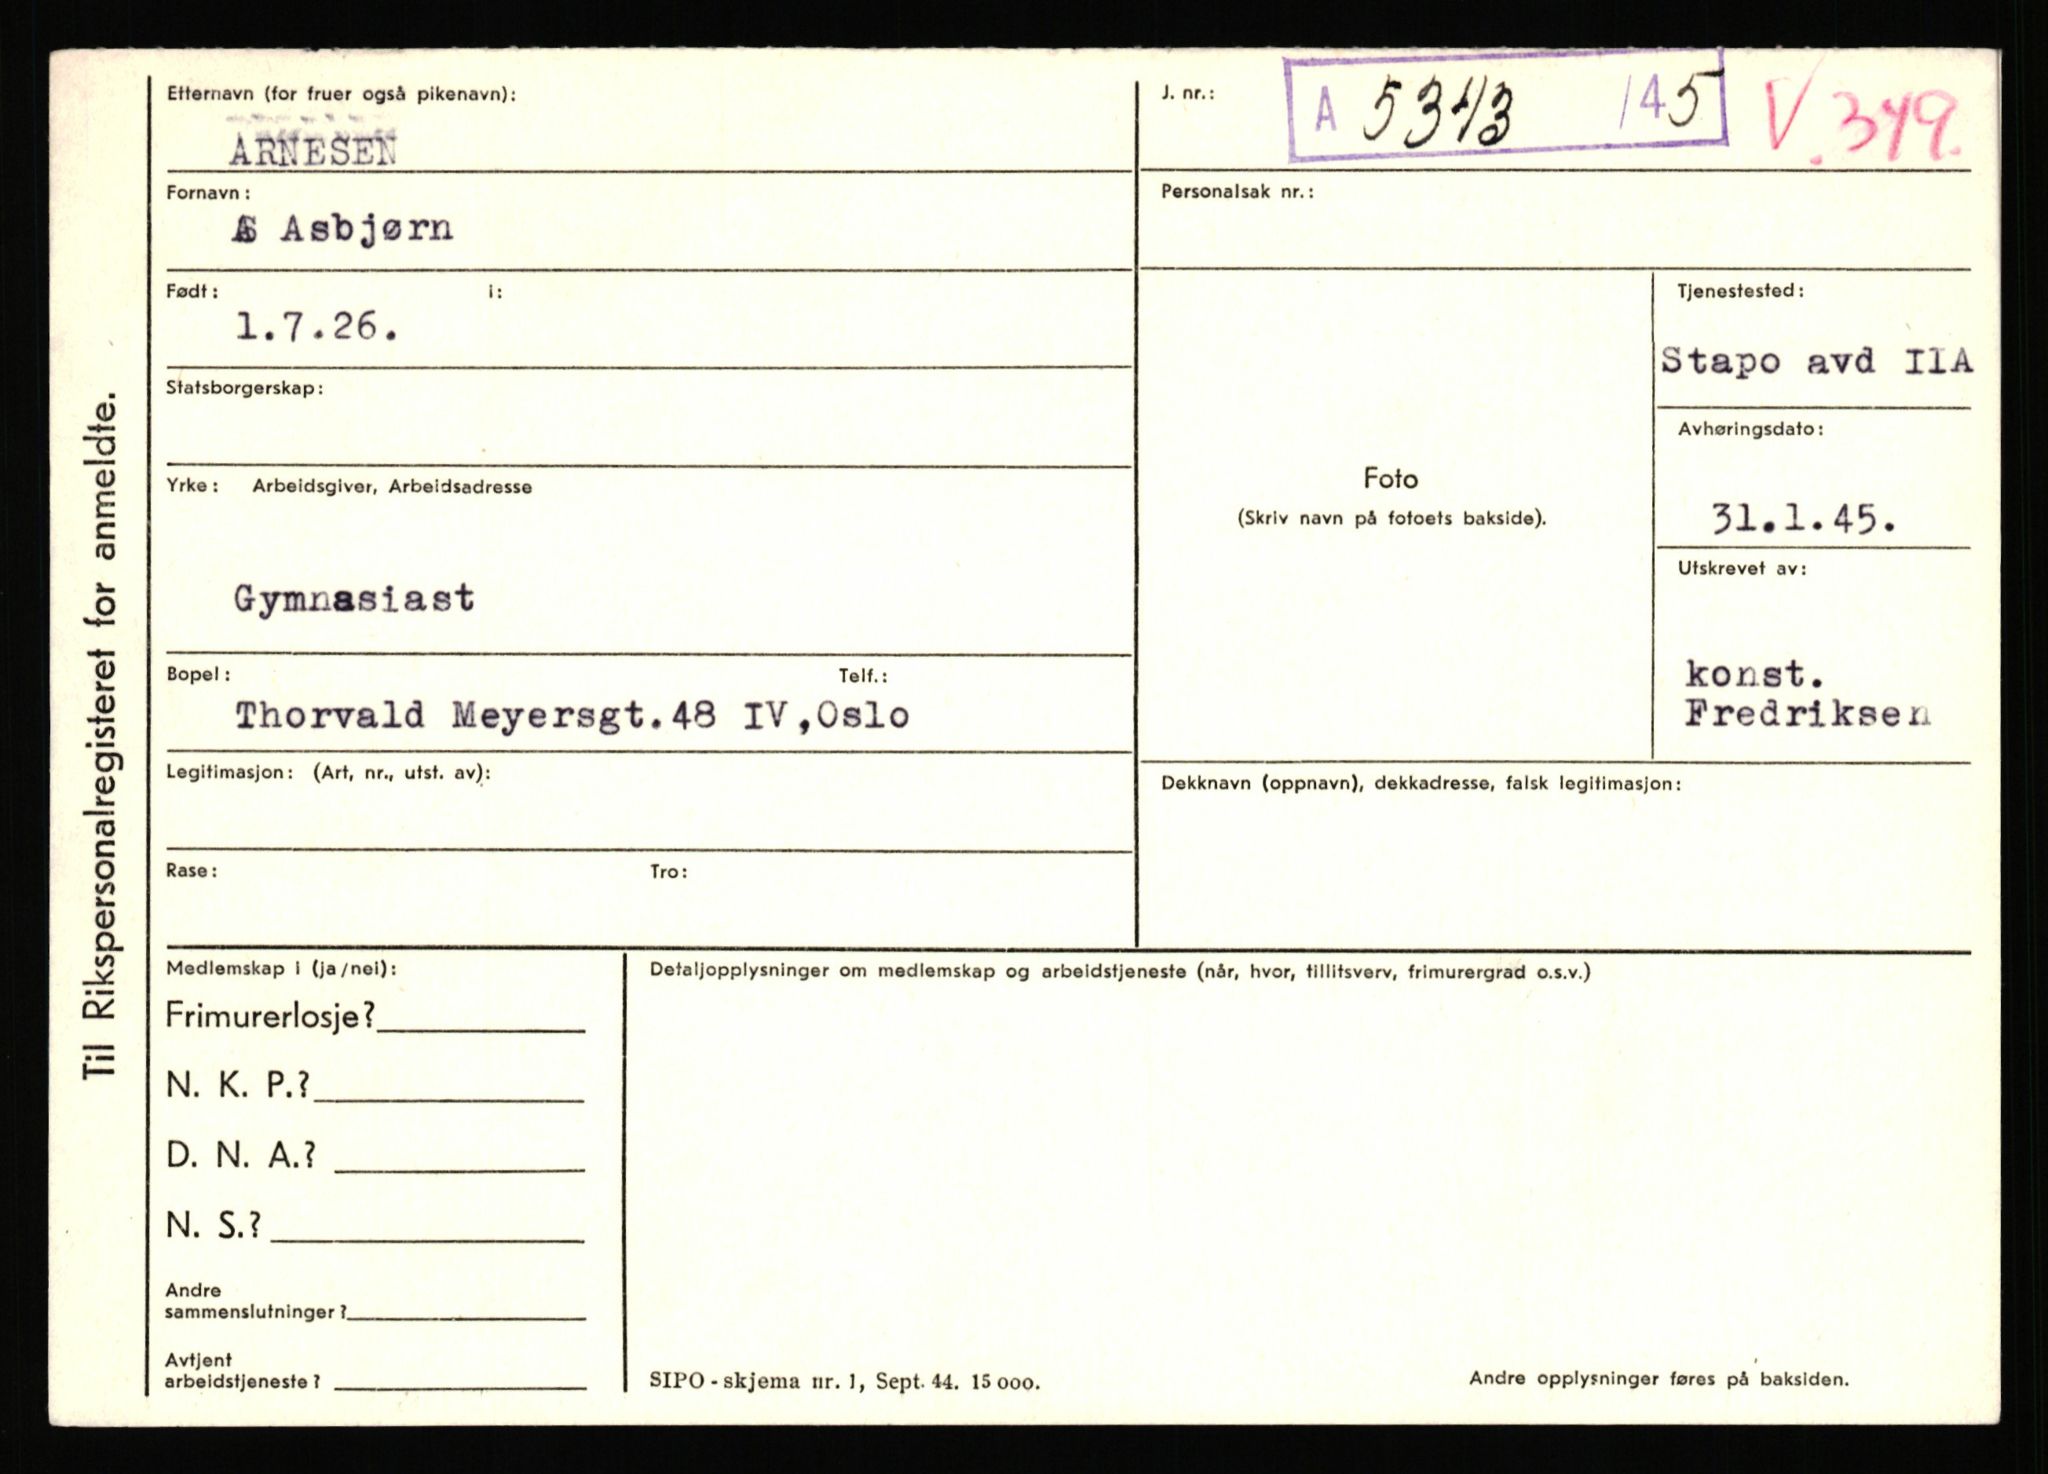 Til Rikspersonalregisteret for anmeldte.
Etternavn (for fruer også pikenavn):
ARNESEN
Fornavn:
Asbjørn
Født: i:
1.7.26.
Statsborgerskap:
Yrke: Arbeidsgiver, Arbeidsadresse
Gymnasiast
Bopel: Telf.:
Thorvald Meyersgt.48 IV,Oslo
Legitimasjon: (Art, nr., utst. av):
Rase: Tro:
J. nr.: A 5343 /45 V. 349.
Personalsak nr.:
Foto
(Skriv navn på fotoets bakside).
Tjenestested:
Stapo avd IIA
Avhøringsdato:
31.1.45.
Utskrevet av:
konst.
Fredriksen
Dekknavn (oppnavn), dekkadresse, falsk legitimasjon:
Medlemskap i (ja/nei):
Frimurerlosje?
N. K. P.?
D. N. A.?
N. S.?
Andre
sammenslutninger?
Avtjent
arbeidstjeneste?
Detaljopplysninger om medlemskap og arbeidstjeneste (når, hvor, tillitsverv, frimurergrad o.s.v.)
SIPO - skjema nr. 1, Sept. 44. 15 000.
Andre opplysninger føres på baksiden.